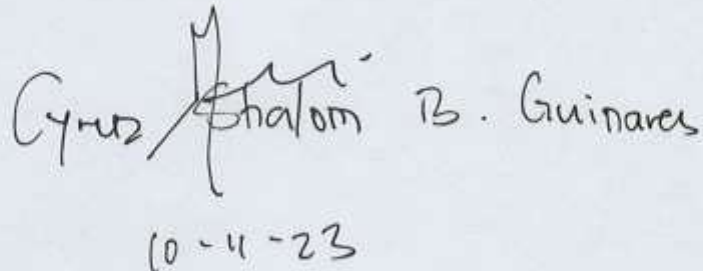 Cyrus Shalom B. Guinares
10-11-23